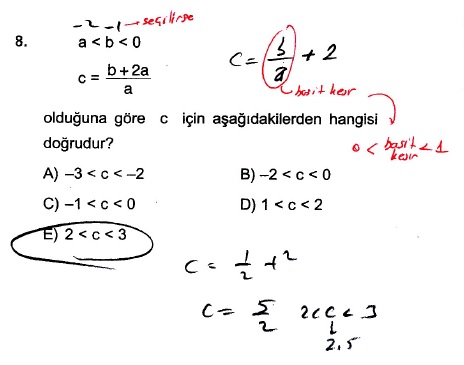 -2 -1 → seçilirse
8. a < b < 0
c = b+2a / a
c = b/a + 2
basit kesir
olduğuna göre c için aşağıdakilerden hangisi
doğrudur?
0 < basit kesir < 1
A) −3 < c < −2 B) −2 < c < 0
C) −1 < c < 0 D) 1 < c < 2
E) 2 < c < 3
c = 1/2 + 2
c = 5/2 2 < c < 3
2,5